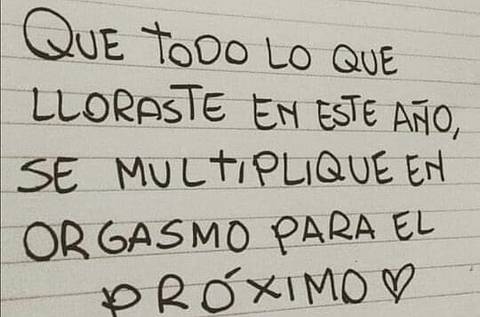 QUE TODO LO QUE
LLORASTE EN ESTE AÑO,
SE MULTIPLIQUE EN
ORGASMO PARA EL
PRÓXIMO ♡